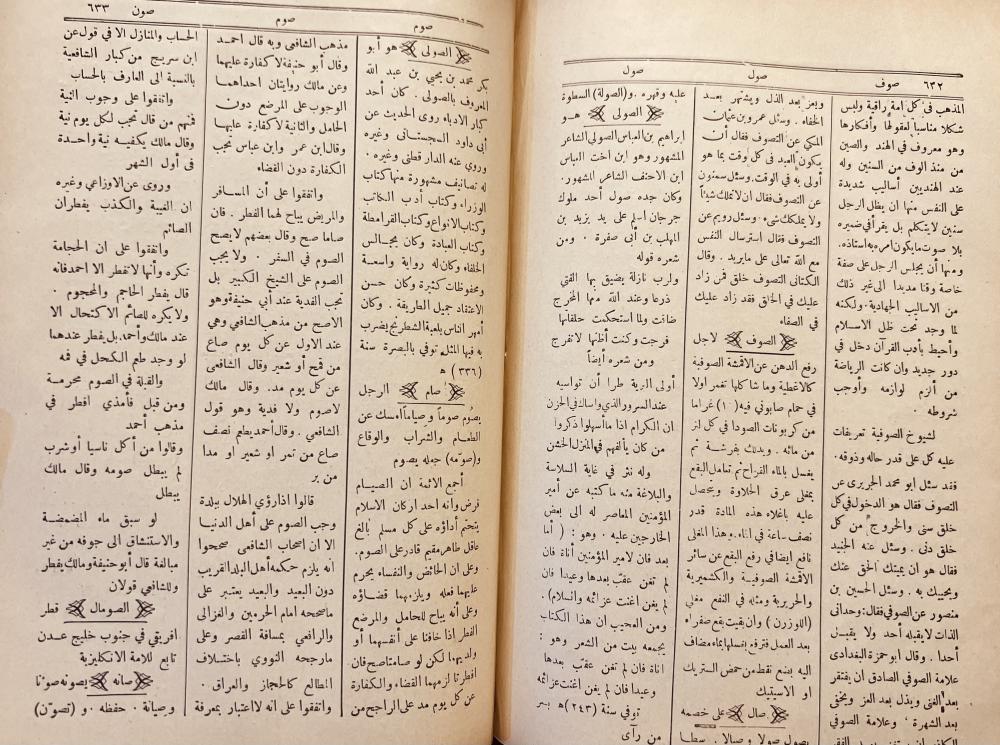 ٦٣٢ صوف
صول
صول
المذهب في كل أمة راقية ولبس
شكلا مناسبا لعقولها وأفكارها
وهو معروف في الهند والصين
من منذ الوف من السنين وله
عند الهنديين أساليب شديدة
على النفس منها ان يظل الرجل
سنين لا يتكلم بل يقرأ في ضميره
بلا صوت ما يكون امره به استاذه.
ومنها أن يجلس الرجل على صفة
خاصة وقتا مديدا الى غير ذلك
من الاساليب الجهادية. ولكنه
لما وجد تحت ظل الاسلام
وأحيط بأدب القرآن دخل في
دور جديد وان كانت الرياضة
من ألزم لوازمه وأوجب
شروطه .
لشيوخ الصوفية تعريفات
عليه كل على قدر حاله وذوقه.
فقد سئل ابو محمد الجريري عن
التصوف فقال هو الدخول في كل
خلق سنى والخروج من كل
خلق دنى . وسئل عنه الجنيد
فقال هو ان يميتك الحق عنك
ويحييك به . وسئل الحسين بن
منصور عن الصوفي فقال: وحداني
الذات لا يقبله أحد ولا يقبل
أحدا . وقال ابو حمزة البغدادى
علامة الصوفي الصادق ان يفتقر
بعد الغنى ويذل بعد العز ويخفى
بعد الشهرة ، وعلامة الصوفي
ويعز بعد الذل ويشتهر بعد
الخفاء . وسئل عمرو بن عثمان
المكي عن التصوف فقال أن
يكون العبد في كل وقت بما هو
أولى به في الوقت. وسئل سمنون
عن التصوف فقال ان لا تملك شيئاً
ولا يملكك شيء . وسئل رويم عن
التصوف فقال استرسال النفس
مع الله تعالى على ما يريد . وقال
الكتانى التصوف خلق فمن زاد
عليك في الخلق فقد زاد عليك
في الصفاء
الصوف لاجل
رفع الدهن عن الاقمشة الصوفية
كالاغطية وما شاكلها تغمر اولا
في حمام صابوني فيه (١٠) غراما
من كربونات الصودا في كل لتر
من مائه . ويدلك بفرشة ثم
يغسل بالماء القراح ثم تعامل البقع
بمغلى عرق الحلاوة ويتحصل
عليه باغلاء هذه المادة قدر
نصف ساعة في اناء . وهذا المغلى
نافع ايضا في رفع البقع عن سائر
الاقشة الصوفية والكشميرية
والحريرية ومثله في النفع مغلى
(اللوزرن) وان بقيت بقع صفراء
بعد العمل فترفع بغسلها بماء مضاف
اليه بضع نقط من حمض الستريك
او الاسيتيك
صال على خصمه
يصول صولا وصالا . سطا
عليه وقهره .و(الصولة) السطوة
الصولى هـو
ابراهيم بن العباس الصولي الشاعر
المشهور وهو ابن اخت العباس
ابن الاحنف الشاعر المشهور.
وكان جده صول أحد ملوك
جرجان اسلم على يد يزيد بن
المهلب بن أبى صفرة . ومن
شعره قوله
ولرب نازلة يضيق بها الفتي
ذرعا وعند الله منها المخرج
ضاقت ولما استحكمت حلقاتها
فرجت وكنت أظنها لا تفرج
ومن شعره أيضاً
أولى البرية طرا أن تواسيه
عند السرور الذي واساك في الحزن
ان الكرام اذا ما أسهلوا ذكروا
من كان يألفهم في المنزل الخشن
وله نثر في غاية السلاسة
والبلاغة منه ما كتبه عن أمير
المؤمنين المعاصر له الى بعض
الخارجين عليه . وهو : ( أما
بعد فان لامير المؤمنين أناة فان
لم تغن عقب بعدها وعيدا فان
لم يغن اغنت عزائمه والسلام).
ومن العجيب ان هذا الكتاب
يجمعه بيت من الشعر وهو :
اناة فان لم تغن عقب بعدها
وعيدا فان لم يغن اغنت عزائمه
توفي سنة (٢٤٣) هـ بسر
من رآى
صوم
صوم
صون ٦٣٣
الصولى هو أبو
بكر محمد بن يحيي بن عبد الله
المعروف بالصولى . كان أحد
كبار الادباء روى الحديث عن
أبي داود السجستانى وغيره
وروي عنه الدار قطنى وغيره .
له تصانيف مشهورة منها كتاب
الوزراء وكتاب أدب الكاتب
وكتاب الانواع وكتاب القرامطة
وكتاب العبادة وكان يجـالس
الخلفاء وكان له رواية واسعـة
ومحفوظات كثيرة وكان حسن
الاعتقاد جميل الطريقة . وكان
أمهر الناس بلعبة الشطرنج يضرب
به فيها المثل. توفي بالبصرة سنة
(٣٣٦) هـ
صام الرجل
يصُوم صوماً وصياماً أمسك عن
الطعـام والشراب والوقاع
و(صوّمه) جعله يصوم
أجمع الائمة ان الصيـام
فرض وانه احد اركان الاسلام
يتحتم أداؤه على كل مسلم بالغ
عاقل طاهر مقيم قادر على الصوم.
وعلى ان الحائض والنفساء يحرم
عليهما فعله ويلزمهما قضـاؤه
وعلى أنه يباح للحامل والمرضع
الفطر اذا خافتا على أنفسهما أو
ولديهما لكن لو صامتا صح فان
افطرتا لزمهما القضاء والكفارة
عن كل يوم مد على الراجح من
مذهب الشافعى وبه قال احمـد
وقال أبو حنيفة لا كفارة عليهما
وعن مالك روايتان احداهما
الوجوب على المرضع دون
الحامل والثانية لا كفارة عليهـا
وقال ابن عمر وابن عباس تجب
الكفارة دون القضاء
واتفقوا على أن المسافر
والمريض يباح لهما الفطر . فان
صاما صح وقال بعضهم لا يصح
الصوم في السفر . ولا يجب
الصوم على الشيخ الكبير بل
تجب الفدية عند أبي حنيفة وهو
الاصح من مذهب الشافعى وهي
عند الاول عن كل يوم صاع
من قمح أو شعير وقال الشافعى
عن كل يوم مد. وقال مالك
لاصوم ولا فدية وهو قول
الشافعي . وقال أحمد يطعم نصف
صاع من تمر او شعير او مدا
من بر
قالوا اذا رؤي الهلال ببلدة
وجب الصوم على أهل الدنيـا
الا ان اصحاب الشافعى صححوا
أنه يلزم حكمه أهل البلد القريب
دون البعيد والبعيد يعتبر على
ما صححه امام الحرمين والغزالى
والرافعي بمسافة القصر وعلى
ما رجحه النووي باختـلاف
المطالع كالحجاز والعراق .
واتفقوا على انه لا اعتبار بمعرفة
الحساب والمنازل الا في قول عن
ابن سريج من كبار الشافعية
بالنسبة الى العارف بالحساب
واتفقوا على وجوب النية
فمنهم من قال تجب لكل يوم نية
وقال مالك يكفيـه نية واحـدة
في أول الشهر
وروى عن الاوزاعي وغيره
ان الغيبة والكذب يفطران
الصائم
واتفقوا على ان الحجامة
تكره وأنها لا تفطر الا احمد فانه
قال يفطر الحاجم والمحجوم .
ولا يكره للصائم الاكتحال الا
عند مالك وأحمد. بل يفطر عندهما
لو وجد طعم الكحل في فمه
والقبلة في الصوم محرمـة
ومن قبل فأمذي افطر في
مذهب أحمد
وقالوا من أكل ناسيا أو شرب
لم يبطل صومه وقال مالك
يبطل
لو سبق ماء المضمضـة
والاستنشاق الى جوفه من غير
مبالغة قال أبو حنيفة ومالك يفطر
وللشافعي قولان
الصومال قطر
افريقي في جنوب خليج عـدن
تابع للامة الانكليزية
صانه يصونه صونا
وصيانة . حفظه . و (تصوّن)